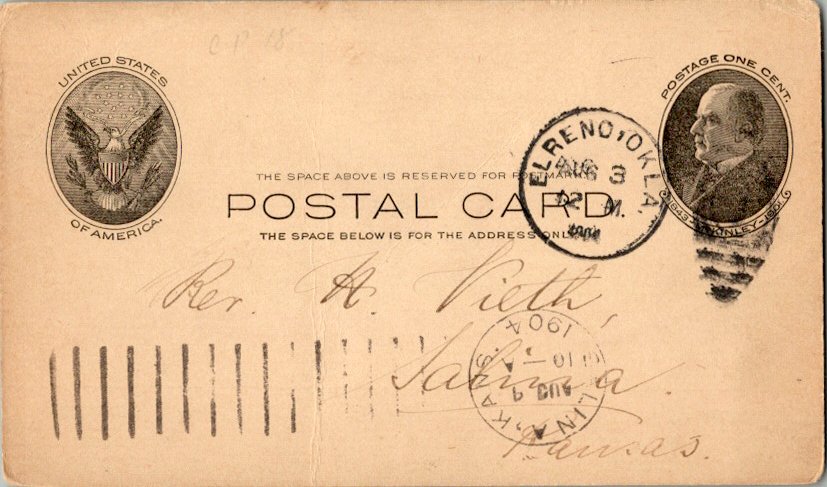 C P 18
UNITED STATES
OF AMERICA.
POSTAGE ONE CENT.
1843-McKINLEY-1901
ELRENO, OKLA.
AUG 3
12 M.
THE SPACE ABOVE IS RESERVED FOR POSTMARK.
POSTAL CARD.
THE SPACE BELOW IS FOR THE ADDRESS ONLY.
Rev. H. Vieth,
Salina.
Kansas.
SALINA, KAS.
AUG
10-A
1904